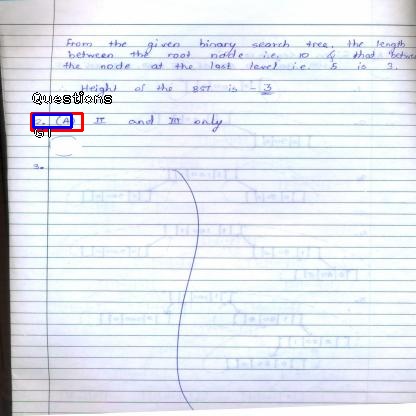 From the given binary search tree, the length
between the root node i.e. 10 & that between
the node at the last level i.e. 5 is 3.
Height of the BST is - 3
Questions
2. (A) II and III only
G1
3.